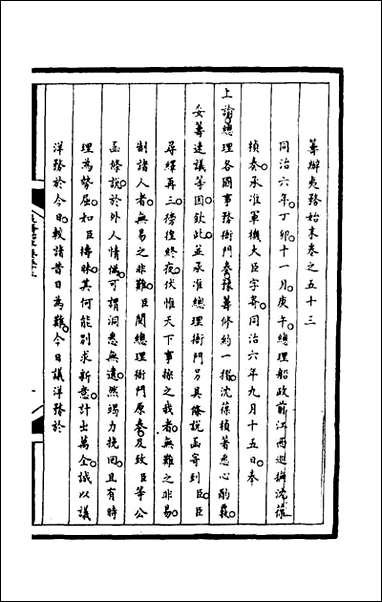 籌辦夷務始末卷之五十三
同治六年丁卯十一月庚午總理船政前江西巡撫沈葆
楨奏承准軍機大臣字寄同治六年九月十五日奉
上諭總理各國事務衙門奏豫籌修約一摺沈葆楨著悉心酌覈
妥籌速議等因欽此並承准總理衙門另具條說函寄到臣臣
尋繹再三徬徨終夜伏惟天下事操之我者無難之非易
制諸人者無易之非難臣閱總理衙門原奏及致臣等公
函條說於外人情偽可謂洞悉無遺然竭力挽回且有時
理為勢屈如臣檮昧其何能別求新意計出萬全誠以議
洋務於今日較諸昔日為難今日議洋務於